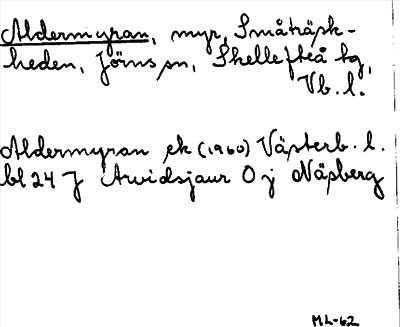 Aldermyran, myr, Småträsk-
heden, Jörns sn, Skellefteå tg,
Vb. l.
Aldermyran ek (1960) Västerb. l.
bl 24 J Arvidsjaur O j Näsberg
ML-62